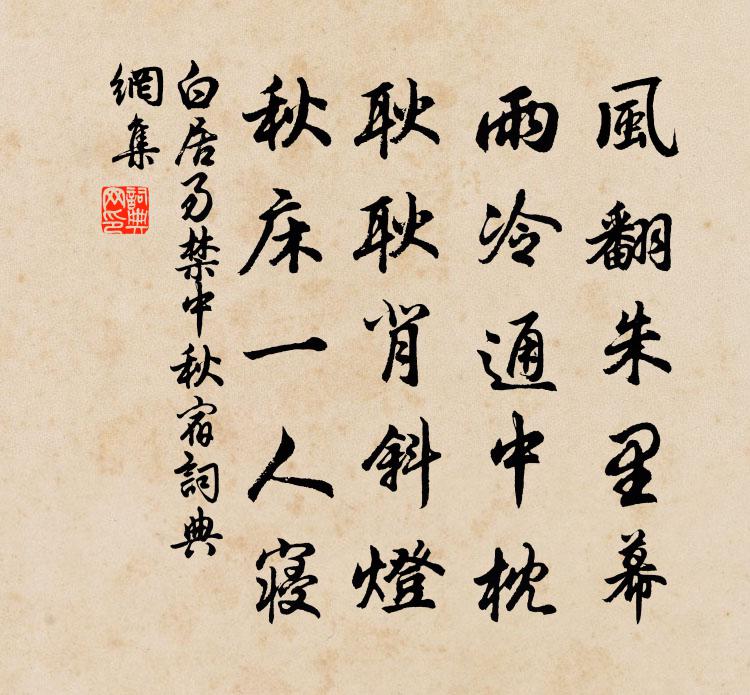 風翻朱里幕
雨冷通中枕
耿耿背斜燈
秋床一人寢
白居易禁中秋宿詞典
網集
詞典
网印